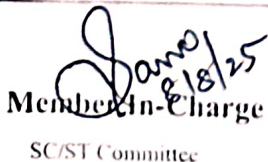 8/8/25
Member-In-Charge
SC/ST Committee